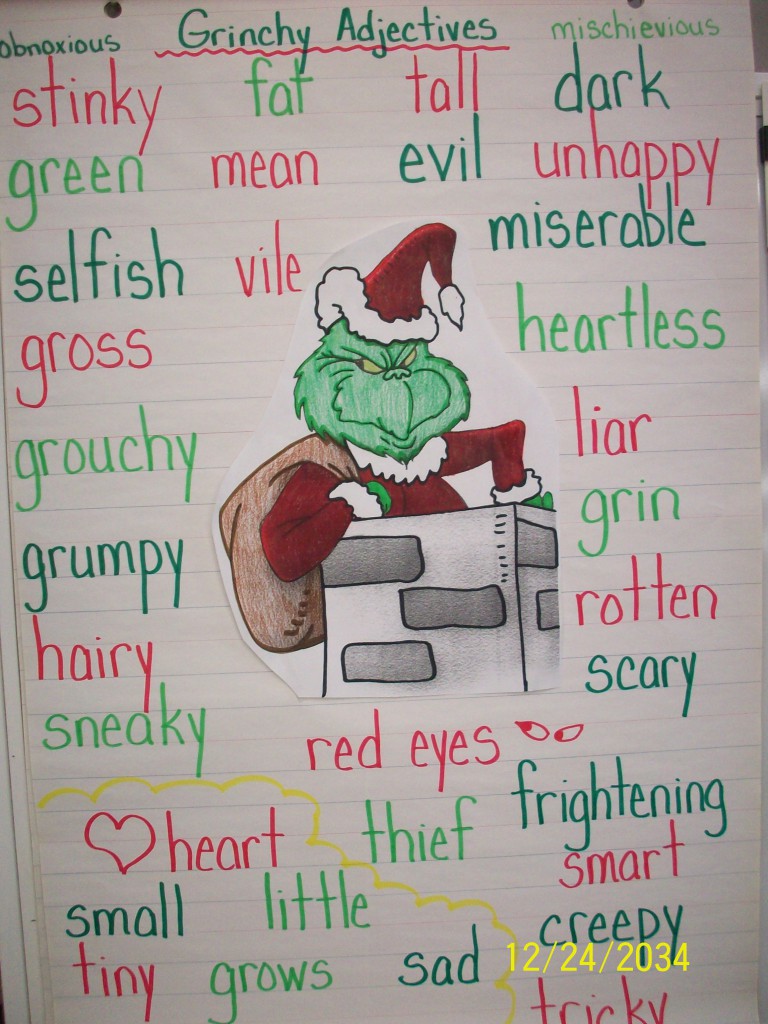 obnoxious Grinchy Adjectives mischievious
stinky fat tall dark
green mean evil unhappy
selfish vile miserable
gross heartless
grouchy liar
grin
grumpy rotten
hairy scary
sneaky red eyes
frightening
heart thief smart
small little creepy
tiny grows sad 12/24/2034
tricky